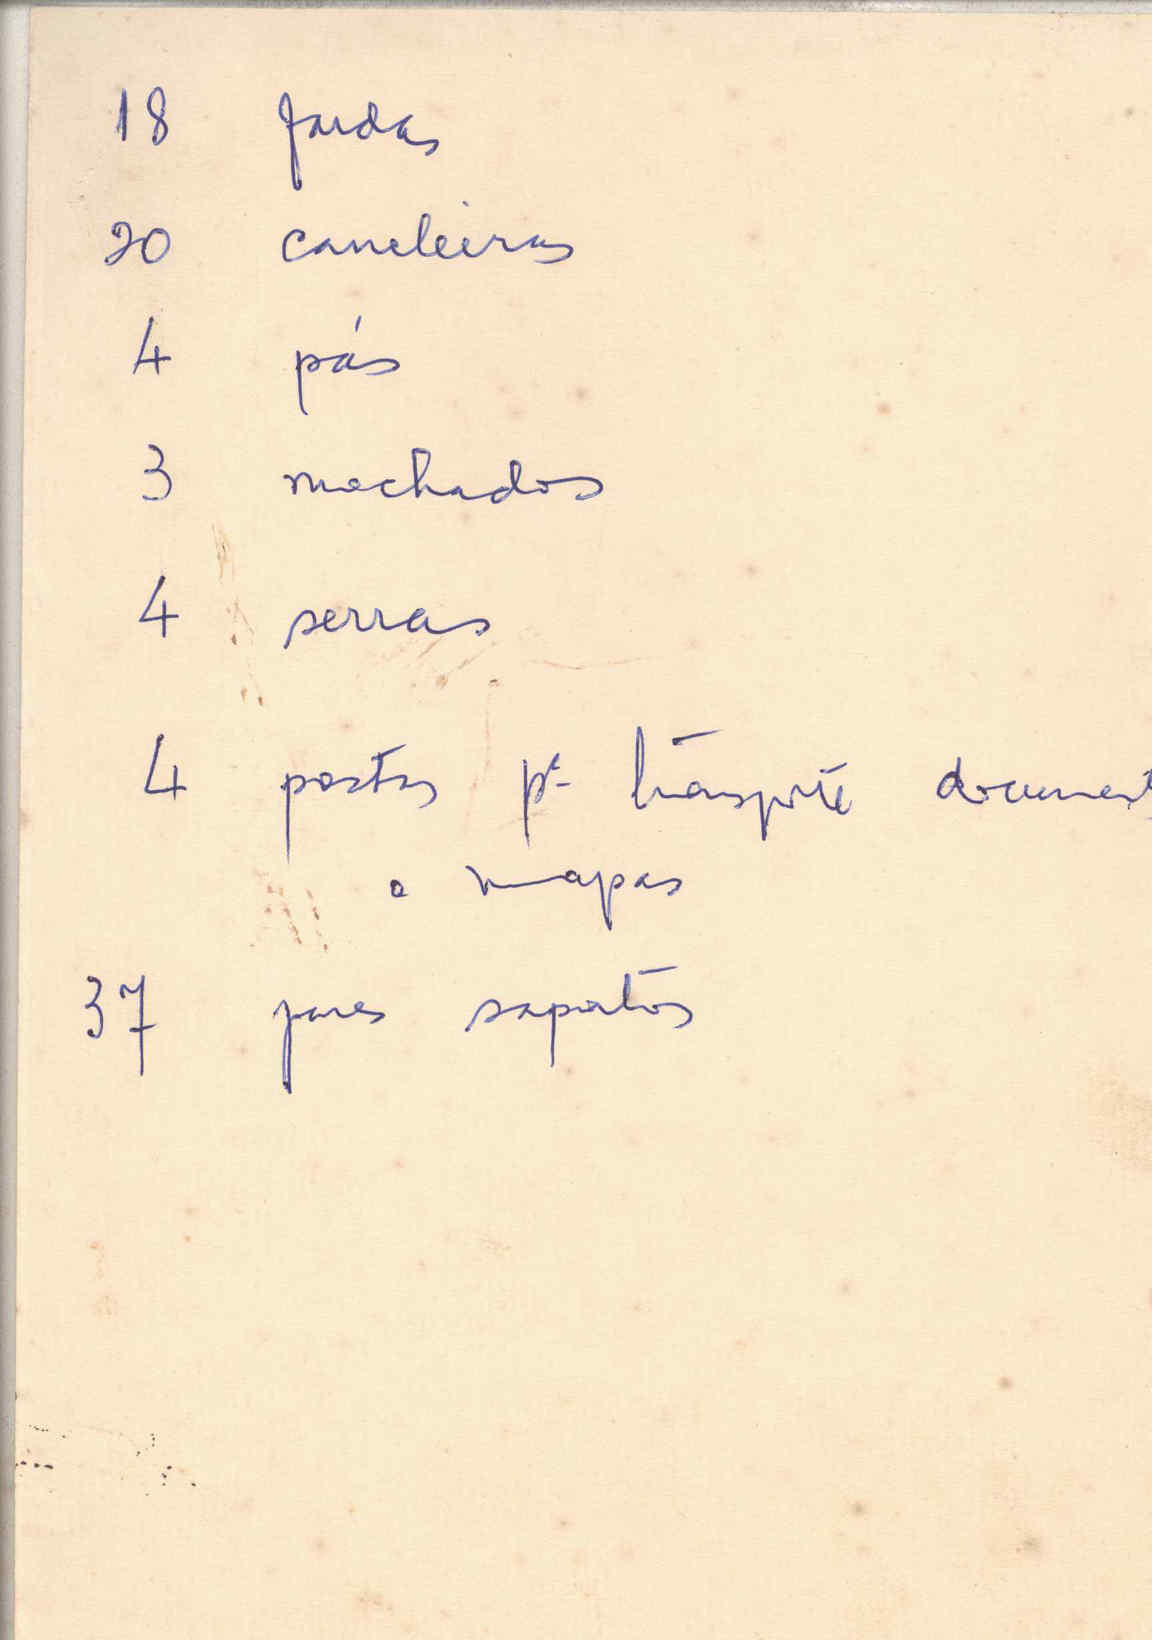 18 fardas
20 caneleiras
4 pás
3 machados
4 serras
4 pastas pª transporte document
e mapas
37 pares sapatos